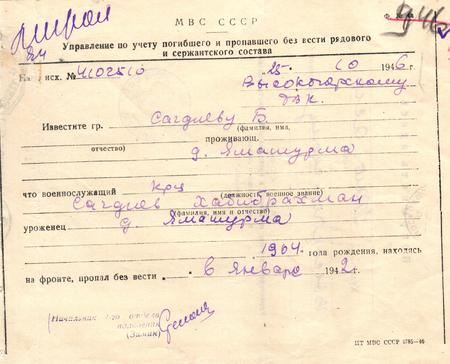 МВС СССР
Ф. №
Управление по учету погибшего и пропавшего без вести рядового
и сержантского состава
На исх. № 4102510
25 10 1946 г.
Высокогорскому
РВК.
Известите гр. Сагдиеву Б.
(фамилия, имя,
проживающ.
отчество)
д. Ямашурма
что военнослужащий Кр-ц
(должность, военное звание)
Сагдиев Хабибрахман
(фамилия, имя и отчество)
уроженец д. Ямашурма
1904 года рождения, находясь
на фронте, пропал без вести в январе 1942 г.
Начальник 4-го отдела
(Зимин)
ЦТ МВС СССР 5785—46